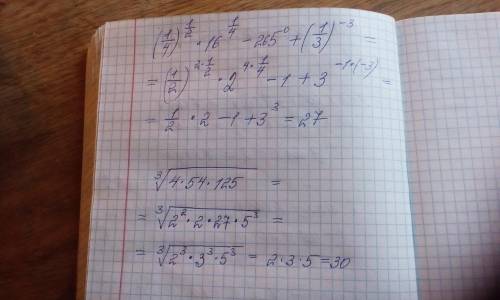 (1/4)^(1/2) · 16^(1/4) - 265^0 + (1/3)^(-3) =
= (1/2)^(2·1/2) · 2^(4·1/4) - 1 + 3^(-1·(-3)) =
= 1/2 · 2 - 1 + 3^3 = 27
∛(4·54·125) =
= ∛(2^2·2·27·5^3) =
= ∛(2^3·3^3·5^3) = 2·3·5=30